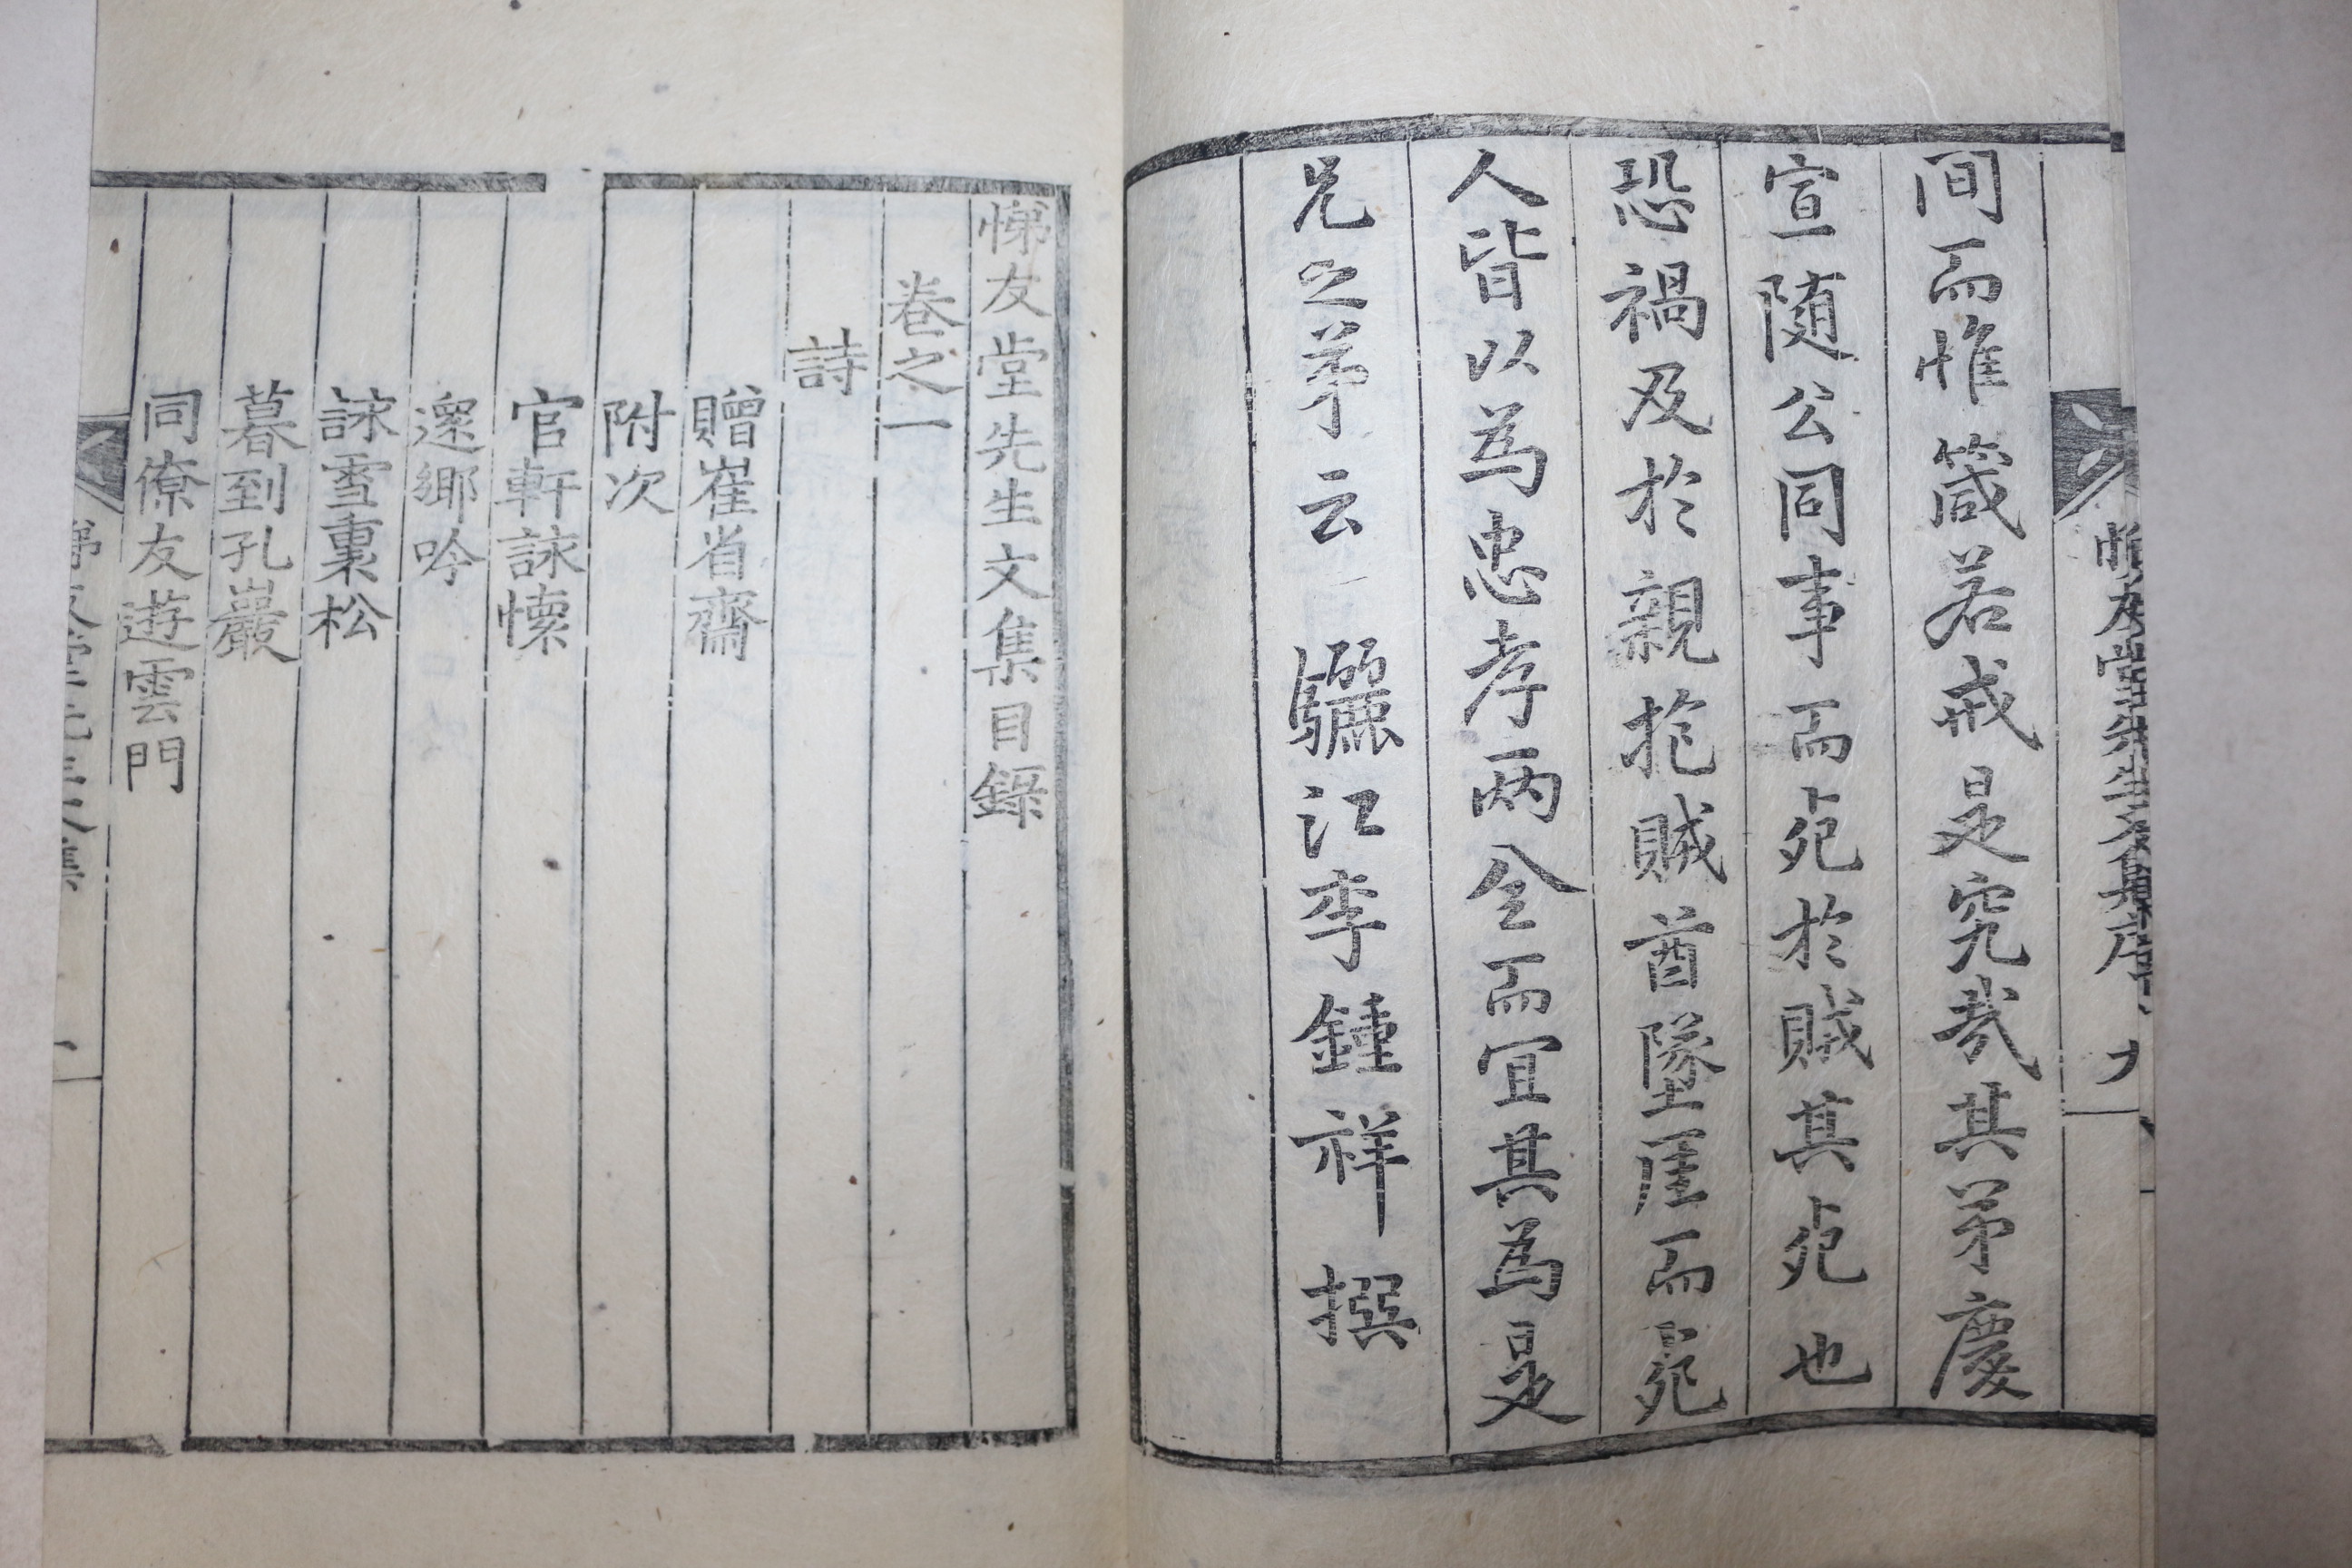 悌友堂先生文集序
間而惟箴若戒是究哉其弟慶
宣随公同事而死於賊其死也
恐禍及於親抱賊酋墜崖而死
人皆以為忠孝兩全而宜其為是
兄之弟云　驪江李鍾祥撰
悌友堂先生文集目錄
卷之一
詩
贈崔省齋
附次
官軒詠懷
還鄉吟
詠雪裏松
暮到孔巖
同僚友遊雲門